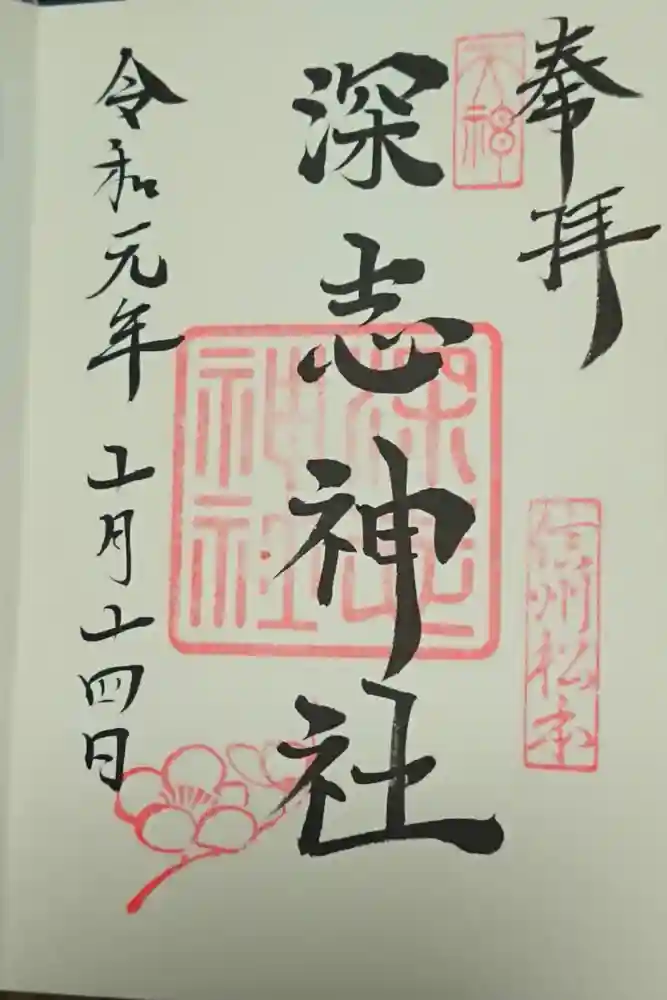 奉拝
天神
信州松本
深志神社
深志神社
令和元年十一月十四日